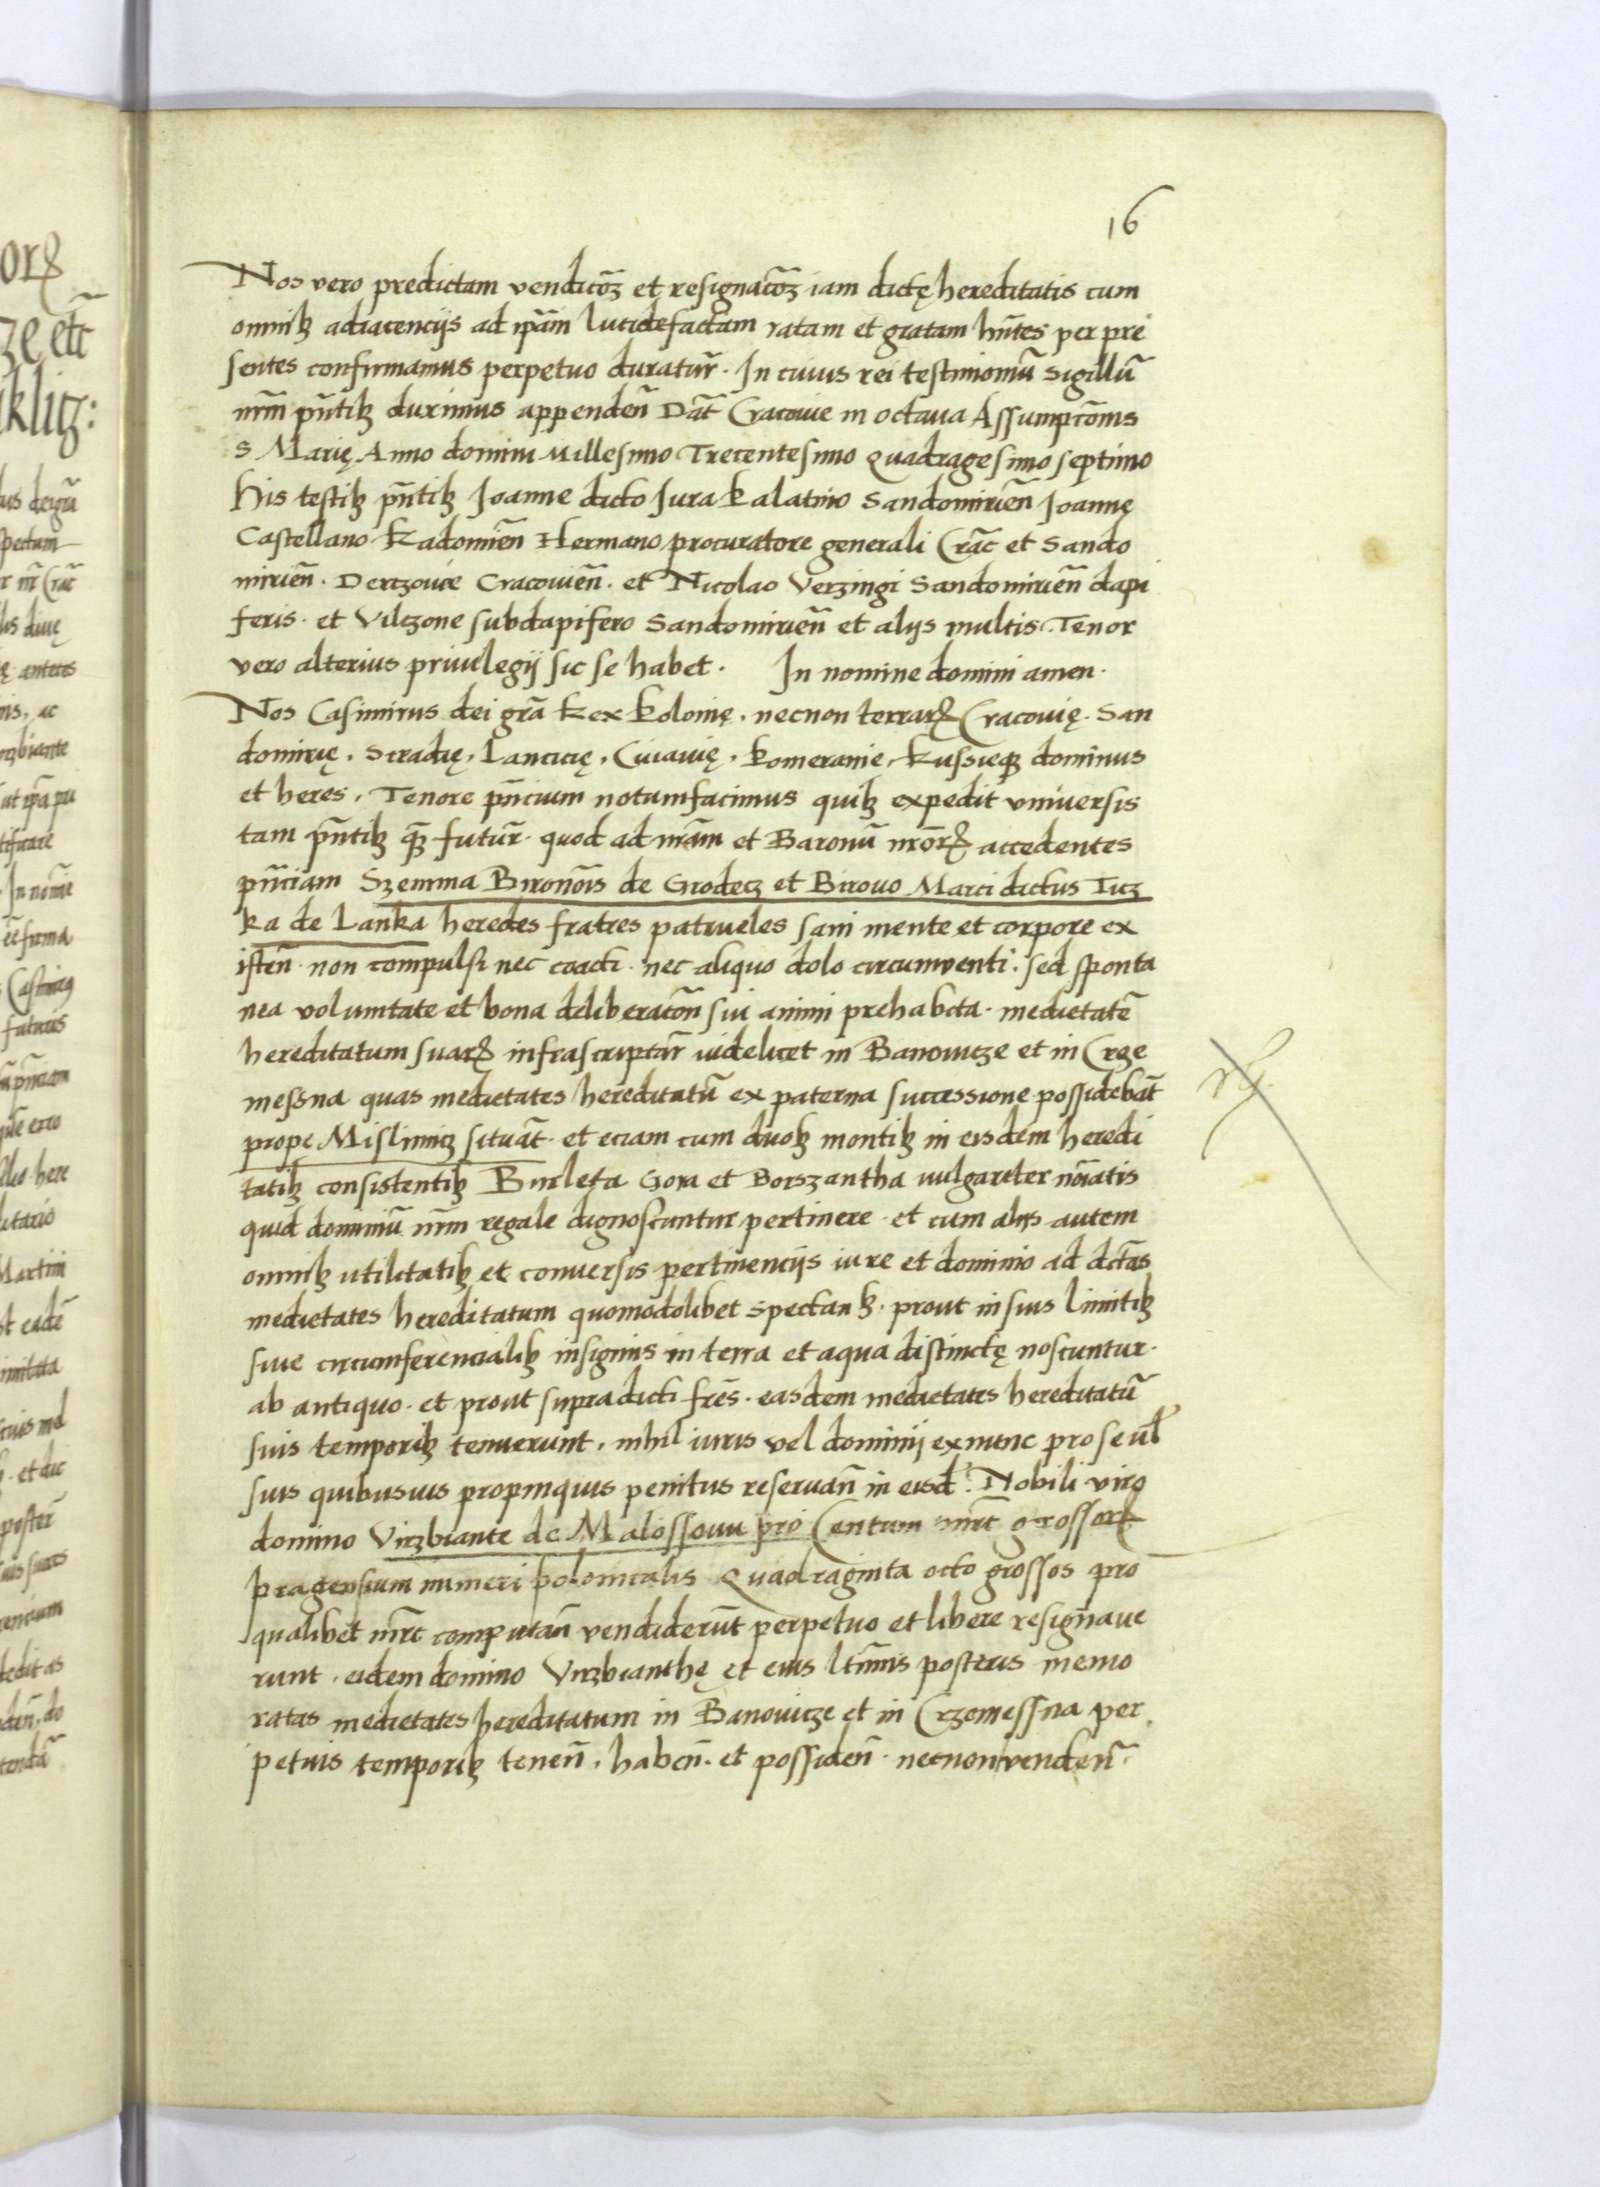 16
Nos vero predictam vendicōz et resignacōz iam dictę hereditatis cum
omnibꝫ adiacencijs ad ip̄am lucidefactam ratam et gratam hn̄tes per pre
sentes confirmamus perpetuo duratur̄. In cuius rei testimoniū sigillū
nr̄m pn̄tibꝫ duximus appendeñ Dat̄ Cracovie in octava Assumpcōnis
S Marię Anno domini Millesimo Trecentesimo Quadragesimo septimo
His testibꝫ pn̄tibꝫ Joanne dicto Jura Palatino Sandomirieñ Joannę
Castellano Radomieñ Hermano procuratore generali Crac̄ et Sando
mirieñ. Dertzovie Cracovieñ. et Nicolao Verzingi Sandomirieñ dapi
feris. et Viltzone subdapifero Sandomirieñ et alijs multis. Tenor
vero alterius privilegij sic se habet. In nomine domini amen.
Nos Casimirus dei gr̄a Rex Polonię. necnon terrarꝝ Cracovię. San
domirię. Siradię. Lancicię. Cuiavię. Pomeranie, Russieqꝫ dominus
et heres. Tenore pn̄cium notumfacimus quibꝫ expedit universis
tam pn̄tibꝫ qꝫ futur̄. quod ad nr̄am et Baronū nr̄orꝝ accedentes
pn̄ciam Szemma Bironōis de Grodecz et Birovo Marci dictus Iucz
ka de Lanka heredes fratres patrueles sani mente et corpore ex
isteñ. non compulsi nec coacti. nec aliquo dolo circumventi. sed sponta
nea voluntate et bona deliberacōn sui animi prehabita. medietatē
hereditatum suarꝝ infrascriptar̄ videlicet in Banovitze et in Crze
messna quas medietates hereditatū ex paterna successione possidebāt
propę Mislimicz situāt. et eciam cum duobꝫ montibꝫ in eisdem heredi
tatibꝫ consistentibꝫ Burleta Gora et Borszantha vulgariter nōiatis
quid dominiū nr̄m regale dignoscuntur pertinere. et cum alijs autem
omnibꝫ utilitatibꝫ et conversis pertinencijs iure et dominio ad dictas
medietates hereditatum quomodolibet spectan bꝫ. prout in suis limitibꝫ
sive circumferencialibꝫ insignijs in terra et aqua distinctę noscuntur.
ab antiquo. et prout supradicti fr̄es. easdem medietates hereditatū
suis temporibꝫ tenuerunt. nihil iuris vel dominij exnunc pro se vl̄
suis quibusvis propinquis penitus reservañ in eisd̄. Nobili viro
domino Virzbiante de Malossovu pro Centum mr̄c grossorꝝ
pragensium numeri polonicalis Quadraginta octo grossos pro
qualibet mr̄c computañ vendiderūt perpetuo et libere resignave
runt. eidem domino Virzbianthę et eius ltīmis posteris memo
ratas medietates hereditatum in Banovitze et in Crzemessna per
petuis temporibꝫ teneñ. habeñ. et possideñ. necnon vendeñ.